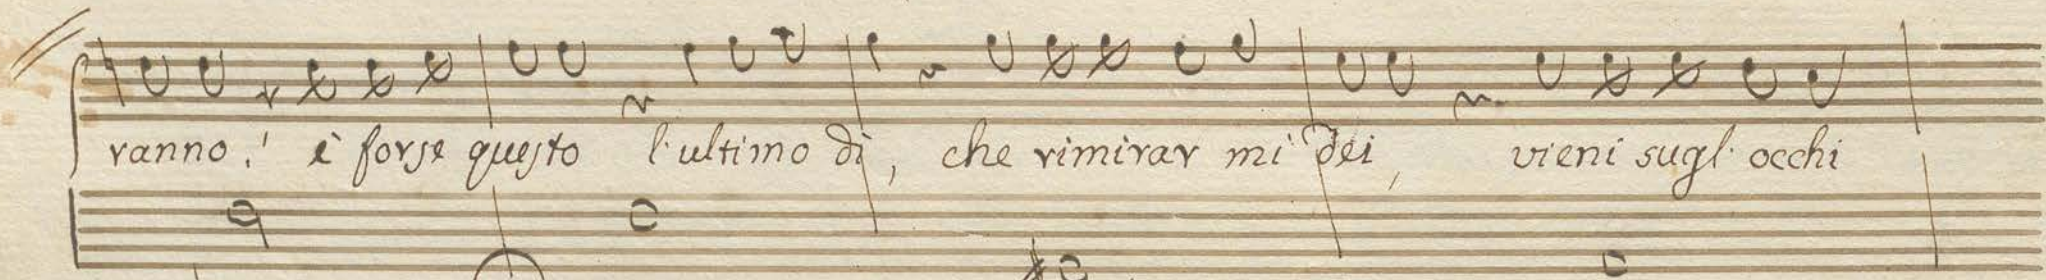 ranno! è forse questo l'ultimo dì, che rimirar mi dei, vieni sugl'occhi